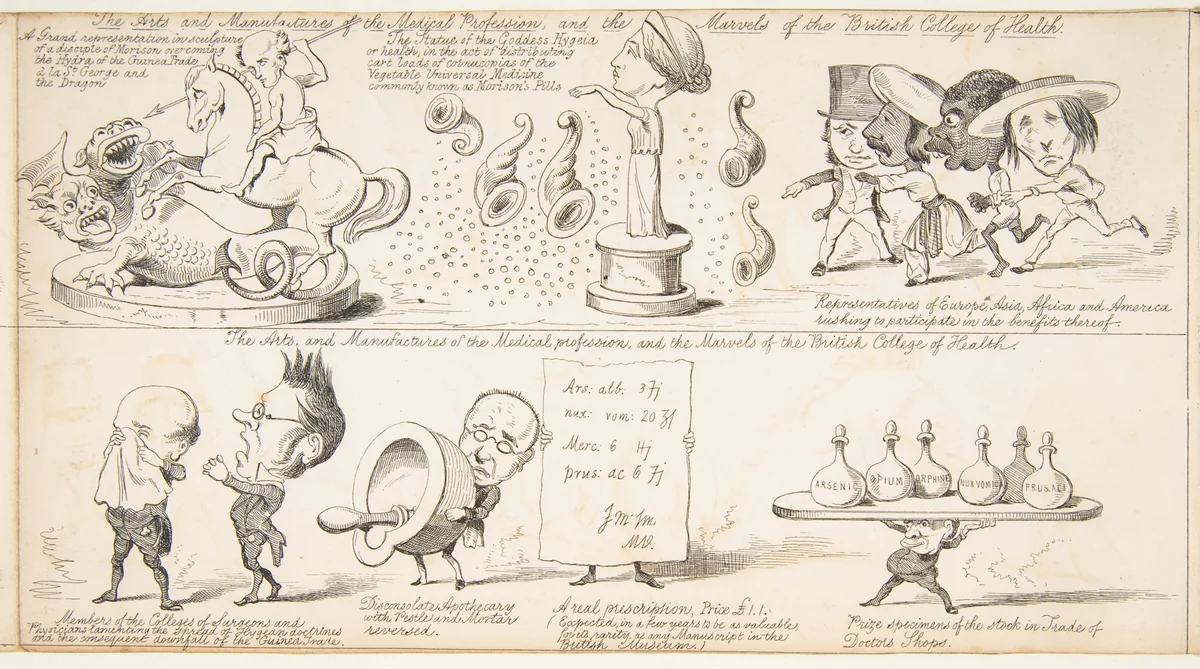 The Arts and Manufactures of the Medical Profession, and the Marvels of the British College of Health.
A Grand representation in sculpture
of a disciple of Morison overcoming
the Hydra of the Guinea Trade
à la St. George and
the Dragon
The Statue of the Goddess Hygeia
or health, in the act of distributing
cart loads of cornucopias of the
Vegetable Universal Medicine
commonly known as Morison's Pills
Representatives of Europe, Asia, Africa and America
rushing to participate in the benefits thereof.
The Arts, and Manufactures of the Medical profession, and the Marvels of the British College of Health.
Members of the Colleges of Surgeons and
Physicians lamenting the spread of Hygean doctrines
and the consequent downfall of the Guinea Trade.
Disconsolate Apothecary
with Pestle and Mortar
reversed.
Ars: alb:
nux: vom: 20
Merc: 6
prus: ac 6
A real prescription, Price £1.1.
(Expected, in a few years to be as valuable,
for its rarity, as any Manuscript in the
British Museum.)
ARSENIC
OPIUM
ORPHINE
NUX VOMIC
PRUS. ACI
Prize specimens of the stock in Trade of
Doctors Shops.